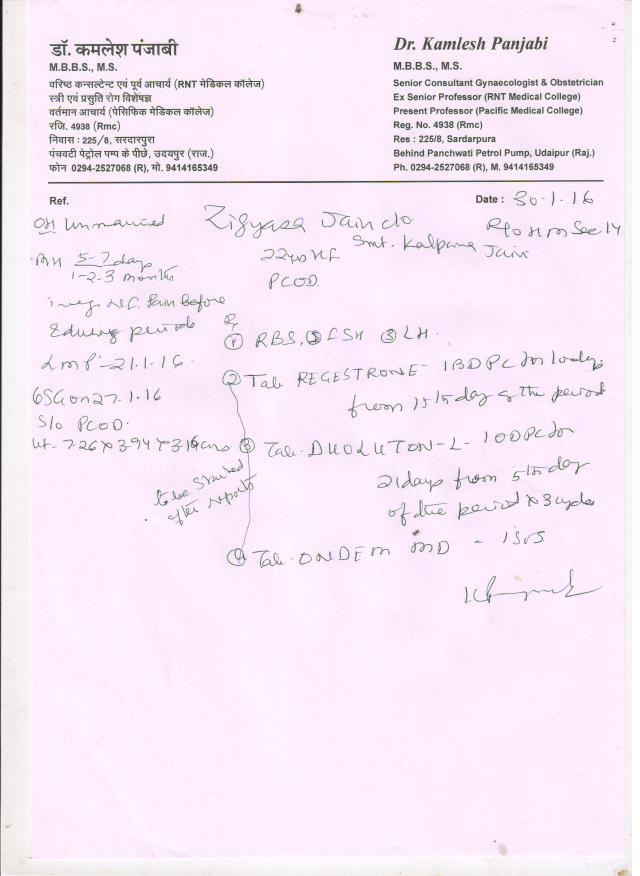 डॉ. कमलेश पंजाबी
M.B.B.S., M.S.
वरिष्ठ कन्सल्टेन्ट एवं पूर्व आचार्य (RNT मेडिकल कॉलेज)
स्त्री एवं प्रसुति रोग विशेषज्ञ
वर्तमान आचार्य (पेसिफिक मेडिकल कॉलेज)
रजि. 4938 (Rmc)
निवास : 225/8, सरदारपुरा
पंचवटी पेट्रोल पम्प के पीछे, उदयपुर (राज.)
फोन 0294-2527068 (R), मो. 9414165349
Dr. Kamlesh Panjabi
M.B.B.S., M.S.
Senior Consultant Gynaecologist & Obstetrician
Ex Senior Professor (RNT Medical College)
Present Professor (Pacific Medical College)
Reg. No. 4938 (Rmc)
Res : 225/8, Sardarpura
Behind Panchwati Petrol Pump, Udaipur (Raj.)
Ph. 0294-2527068 (R), M. 9414165349
Ref.
Date : 30.1.16
OH Unmarried
Jain
Smt. Kalpana Jain
R/o H m Sec 14
5-7 days
1-2-3 months
Pain before
& during periods
LMP - 21.1.16
USG on 27.1.16
S/o PCOD.
PCOD
① RBS, ② FSH ③ LH.
② Tab REGESTRONE - 1 BDPC for 10 days
from 15th day of the period
③ Tab. DUOLUTON-L - 1 ODPC for
21 days from 5th day
of the period x 3 cycles
to be started
after reports
④ Tab. ONDEM MD - 1 SOS